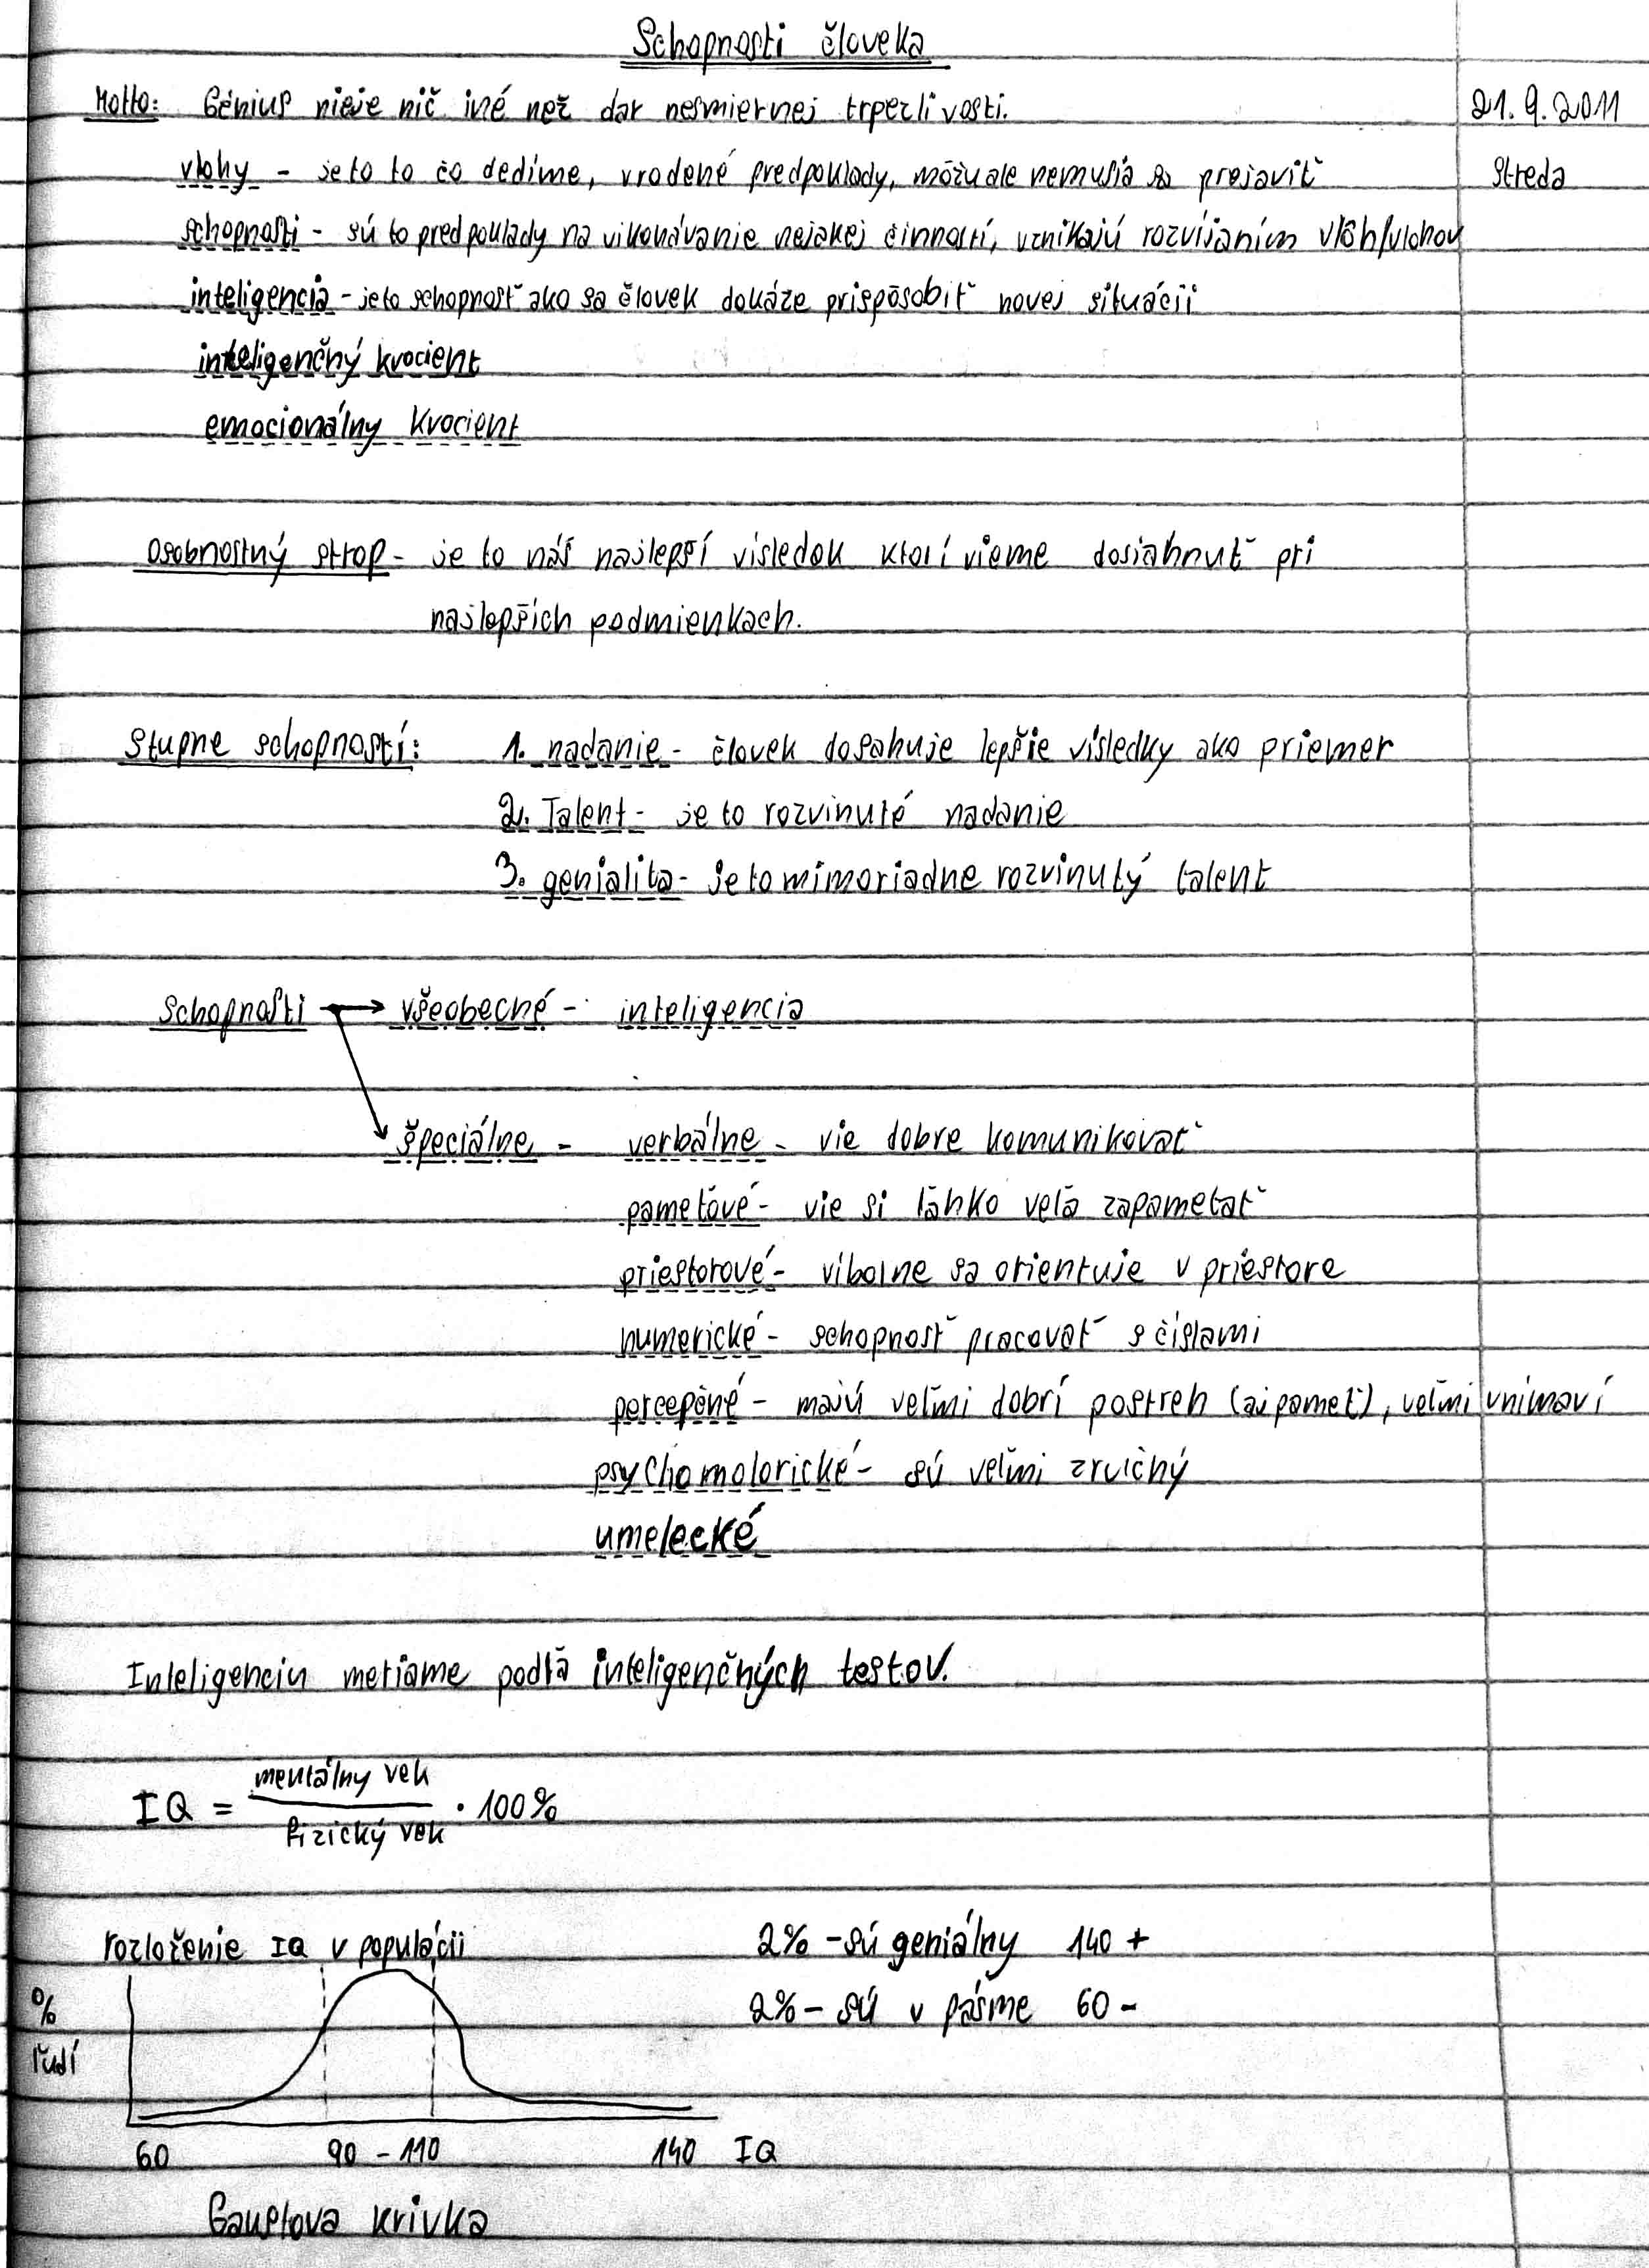 Schopnosti človeka
Motto: Génius nieje nič iné než dar nesmiernej trpezlivosti. 21.9.2011
vlohy - je to to čo dedíme, vrodené predpoklady, môžu ale nemusia sa prejaviť streda
schopnosti - sú to predpoklady na vikonávanie nejakej činností, vznikajú rozvíjaním vlôh/vlohov
inteligencia - je to schopnosť ako sa človek dokáže prispôsobiť novej situácii
inteligenčný kvocient
emocionálny kvocient
Osobnostný strop - je to náš najlepší visledok ktorí vieme dosiahnuť pri
najlepších podmienkach.
Stupne schopností: 1. nadanie - človek dosahuje lepšie visledky ako priemer
2. Talent - je to rozvinuté nadanie
3. genialita - je to mimoriadne rozvinutý talent
Schopnosti → všeobecné - inteligencia
špeciálne - verbálne - vie dobre komunikovať
pameťové - vie si ľahko veľa zapametať
priestorové - vibolne sa orientuje v priestore
numerické - schopnosť pracovať s číslami
percepčné - majú veľmi dobrí postreh (aj pameť), veľmi vnímaví
psychomotorické - sú veľmi zručný
umelecké
Inteligenciu meriame podľa inteligenčných testov.
IQ = mentálny vek / fizický vek · 100%
rozloženie IQ v populácii 2% - sú geniálny 140 +
% ľudí 2% - sú v pásme 60 -
60 90 - 110 140 IQ
Gaustova krivka